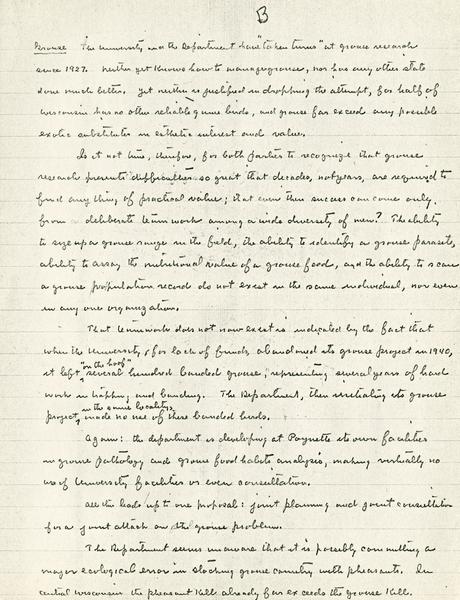 B
Grouse The University and the Department have "taken turns" at grouse research
since 1927. Neither yet knows how to manage grouse, nor has any other state
done much better. Yet neither is justified in dropping the attempt, for half of
Wisconsin has no other reliable game birds, and grouse far exceed any possible
exotic substitutes in esthetic interest and value.
Is it not time, therefore, for both parties to recognize that grouse
research presents difficulties so great that decades, not years, are required to
find any thing of practical value; that even then success can come only
from a deliberate teamwork among a wide diversity of men? The ability
to size up a grouse range in the field, the ability to identify a grouse parasite,
ability to assay the nutritional value of a grouse food, and the ability to scan
a grouse population record do not exist in the same individual, nor even
in any one organization.
That teamwork does not now exist is indicated by the fact that
when the University, for lack of funds, abandoned its grouse project in 1940,
"on the hoof"
it left several hundred banded grouse, representing several years of hard
work in trapping and banding. The Department, then initiating its grouse
in the same locality,
project, made no use of these banded birds.
Again: the department is developing at Poynette its own facilities
in grouse pathology and grouse food habits analysis, making virtually no
use of University facilities or even consultation.
All this leads up to one proposal: joint planning and joint consultation
for a joint attack on the grouse problem.
The Department seems unaware that it is possibly committing a
major ecological error in stocking grouse country with pheasants. In
central Wisconsin the pheasant kill already far exceeds the grouse kill.